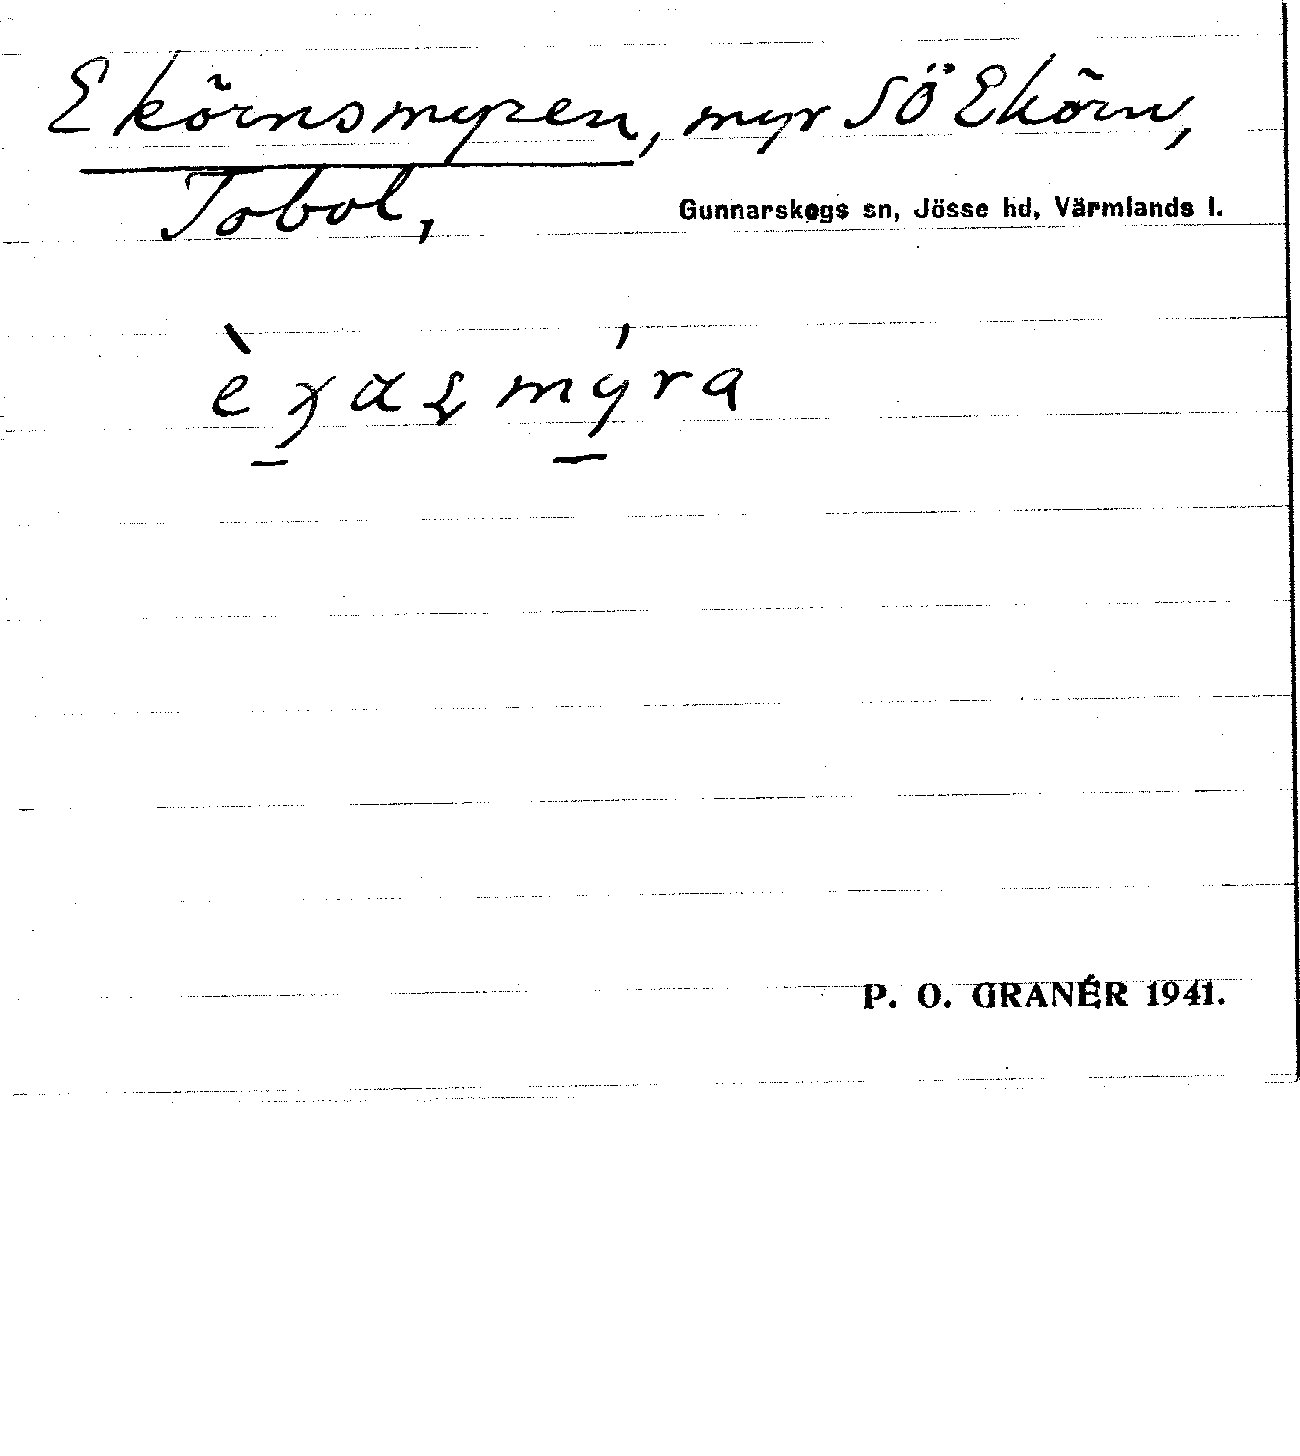 Ekörnsmyren, myr SÖ Ekörn,
Tobol,
Gunnarskogs sn, Jösse hd, Värmlands l.
P. O. GRANÉR 1941.